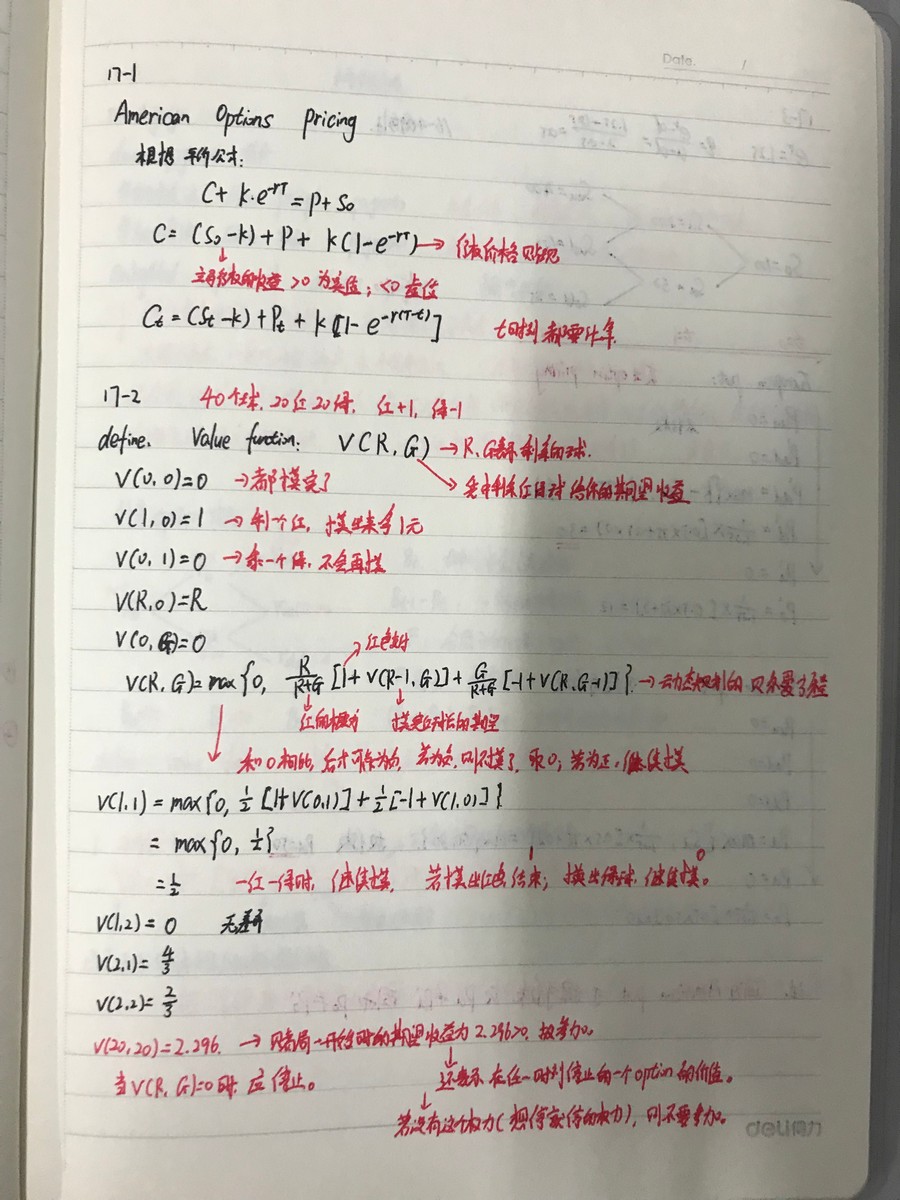 Date. /
17-1
American Options Pricing
根据平价公式:
C+ K·e^-rT = P+ S₀
C= (S₀-K)+P+ K(1-e^-rT) → 行权价格贴现
立刻行权的收益 >0 为实值; <0 虚值
Cₜ = (Sₜ-K)+Pₜ+ K[1-e^-r(T-t)] t时刻都要计算.
17-2 40个球, 20红20绿, 红+1, 绿-1
define. Value function: V(R,G) → R,G表示剩余的球.
V(0,0)=0 → 都摸完了 → 袋中剩余红绿球给你的期望收益
V(1,0)=1 → 剩1个红, 摸出来多1元
V(0,1)=0 → 剩一个绿, 不会再摸
V(R,0)=R
V(0,G)=0 红色支付
V(R,G)=max{0, R/R+G [1+V(R-1,G)]+ G/R+G [-1+V(R,G-1)]} → 动态规划的贝尔曼方程
红的概率 摸完红球后的期望
和0相比, 后者可能为负, 若为负, 则不摸了, 取0; 若为正, 继续摸
V(1,1) = max{0, 1/2[1+V(0,1)]+1/2[-1+V(1,0)]}
= max{0, 1/2}
= 1/2 一红一绿时, 继续摸, 若摸出红球, 结束; 摸出绿球, 继续摸。
V(1,2)= 0 无差异
V(2,1)= 4/3
V(2,2)= 2/3
V(20,20)=2.296. → 赌局一开始时的期望收益为2.296>0, 故参加。
当V(R,G)=0时, 应停止。 还表示在任一时刻停止的一个option的价值。
若没有这个权力(想停就停的权力), 则不要参加。
deli得力